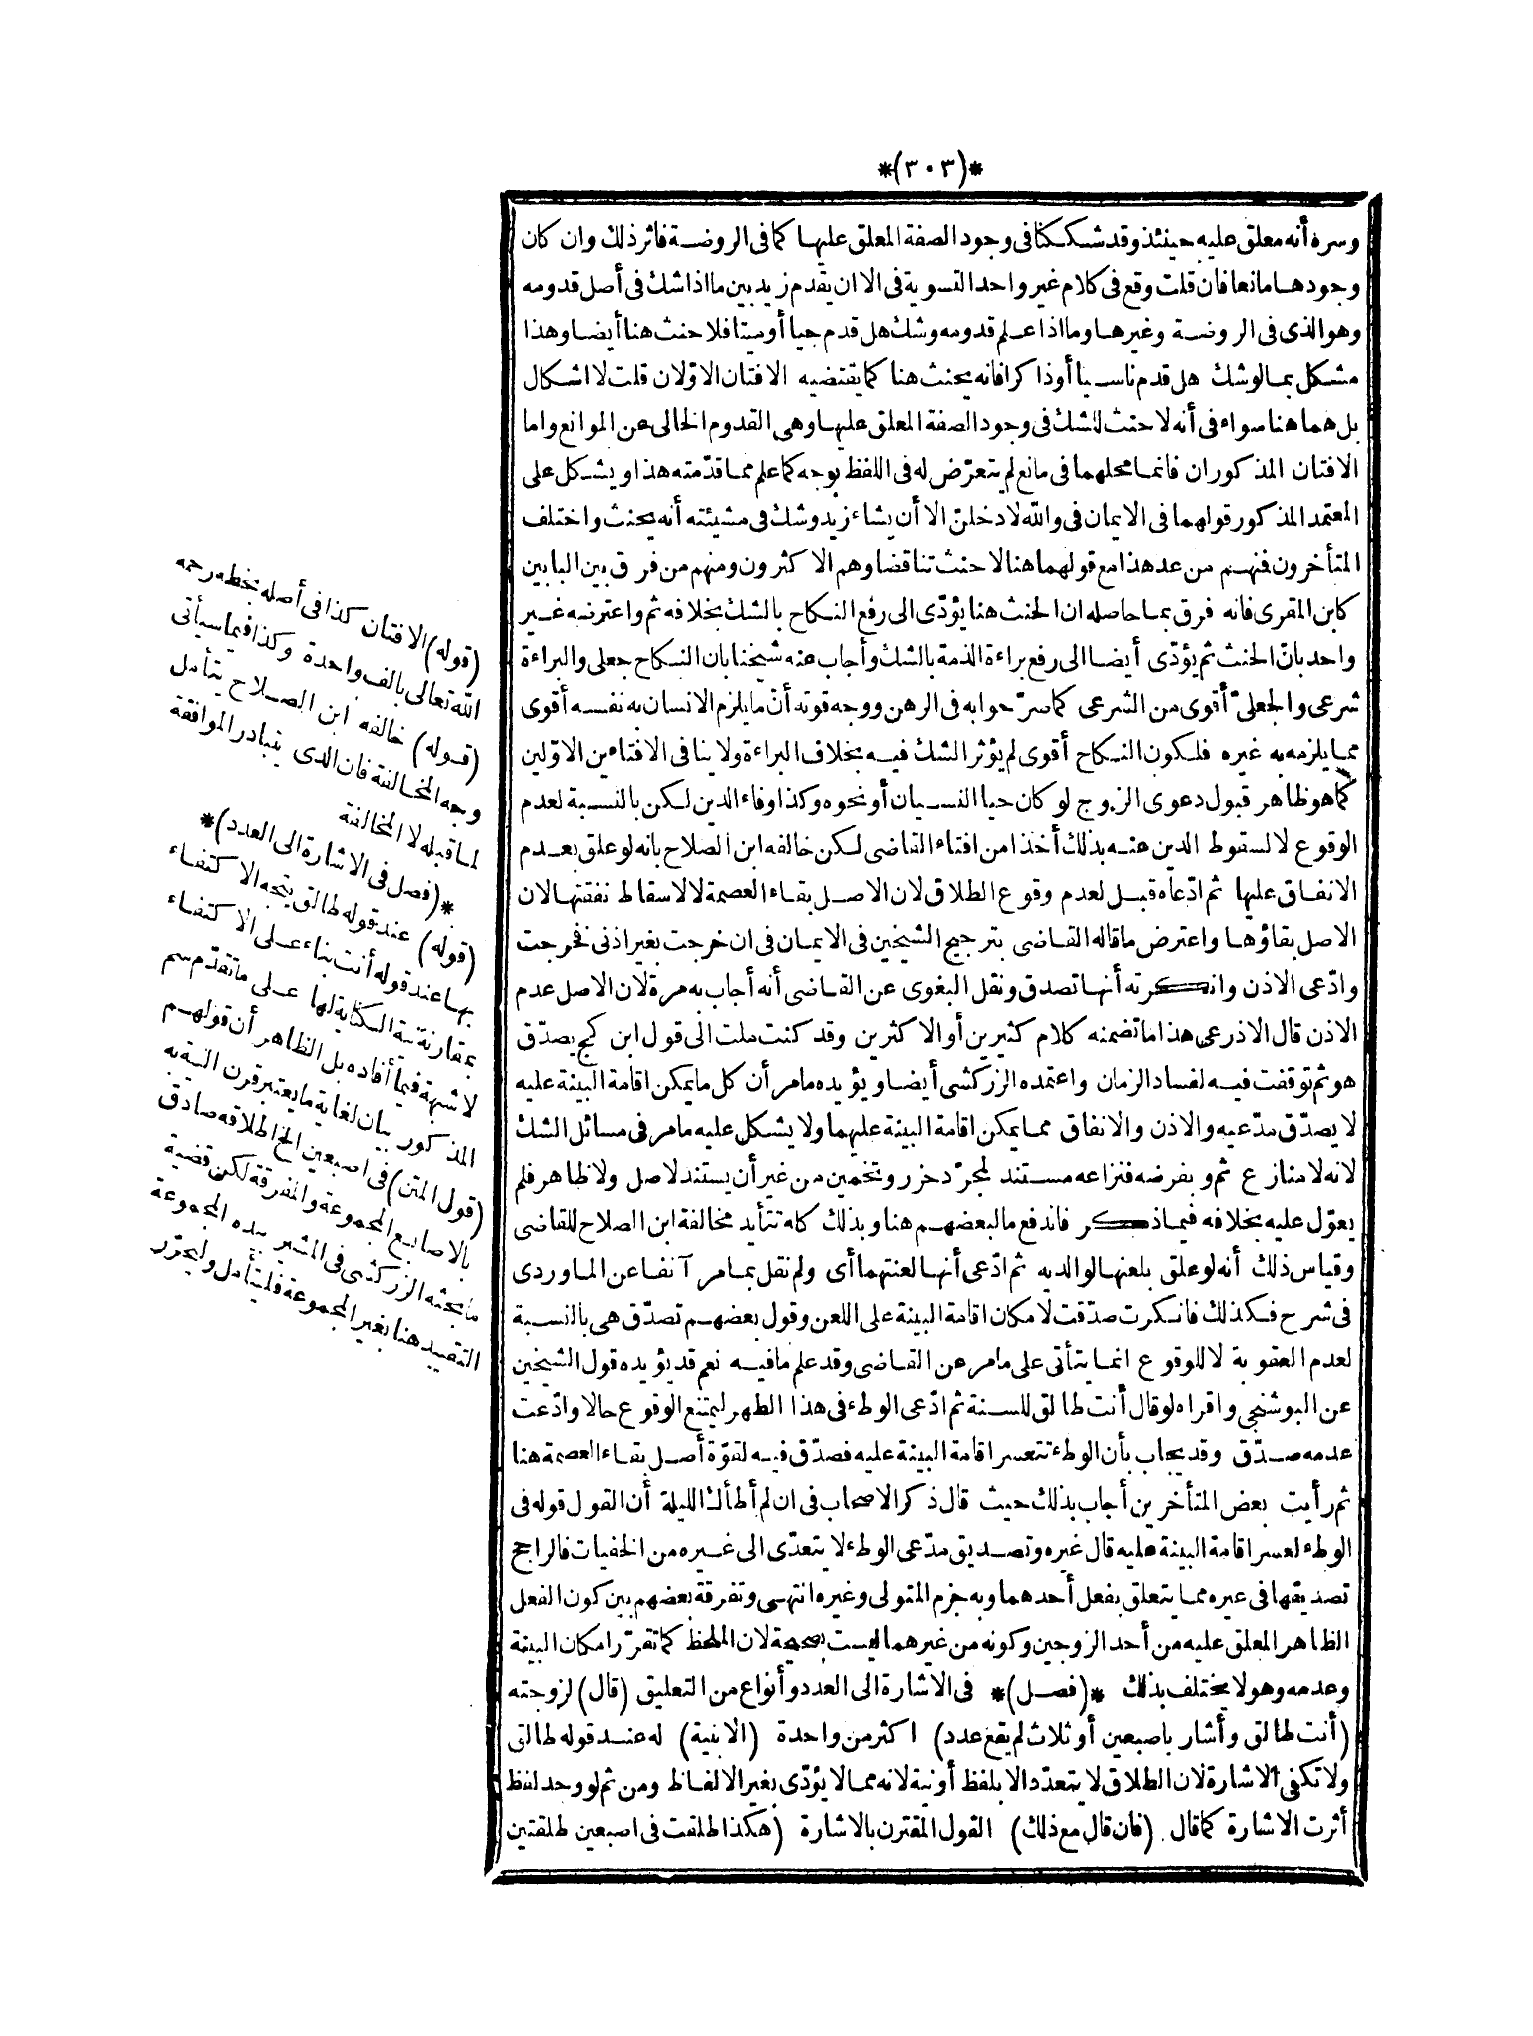 *(٣٠٣)*
وسره أنه معلق عليه حينئذ وقد شككنا فى وجود الصفة المعلق عليها كما فى الروضة فاثر ذلك وان كان
وجودها مانعا فان قلت وقع فى كلام غير واحد التسوية فى الا ان يقدم زيد بين ما اذا شك فى أصل قدومه
وهو الذى فى الروضة وغيرها وما اذا علم قدومه وشك هل قدم حيا أو ميتا فلا حنث هنا أيضا وهذا
مشكل بمالو شك هل قدم ناسيا أو ذاكرا فانه يحنث هنا كما يقتضيه الافتان الاوّلان قلت لا اشكال
بل هما هنا سواء فى أنه لا حنث للشك فى وجود الصفة المعلق عليها وهى القدوم الخالى عن الموانع واما
الافتان المذكوران فانما محلهما فى مانع لم يتعرّض له فى اللفظ بوجه كما علم مما قدّمته هذا ويشكل على
المعتمد المذكور قولهما فى الايمان فى والله لادخلنّ الا أن يشاء زيد وشك فى مشيئته أنه يحنث واختلف
المتأخرون فمنهم من عد هذا مع قولهما هنا لا حنث تناقضا وهم الاكثرون ومنهم من فرق بين البابين
كابن المقرى فانه فرق بما حاصله ان الحنث هنا يؤدّى الى رفع النكاح بالشك بخلافه ثم واعترضه غير
واحد بانّ الحنث ثم يؤدّى أيضا الى رفع براءة الذمة بالشك وأجاب عنه شيخنا بان النكاح جعلى والبراءة
شرعى والجعلىّ أقوى من الشرعى كما صرّحوا به فى الرهن ووجه قوته أنّ ما يلزم الانسان به نفسه أقوى
مما يلزمه به غيره فلكون النكاح أقوى لم يؤثر الشك فيه بخلاف البراءة ولا ينافى الافتاءين الاوّلين
كما هو ظاهر قبول دعوى الزوج لو كان حيا النسيان أو نحوه وكذا وفاء الدين لكن بالنسبة لعدم
الوقوع لا لسقوط الدين عنه بذلك أخذا من افتاء القاضى لكن خالفه ابن الصلاح بانه لو علق بعدم
الانفاق عليها ثم ادّعاه قبل لعدم وقوع الطلاق لان الاصل بقاء العصمة لا لاسقاط نفقتها لان
الاصل بقاؤها واعترض ما قاله القاضى بترجيح الشيخين فى الايمان فى ان خرجت بغير اذنى فخرجت
وادّعى الاذن وانكرته أنها تصدق ونقل البغوى عن القاضى أنه أجاب به مرة لان الاصل عدم
الاذن قال الاذرعى هذا ما تضمنه كلام كثيرين أو الاكثرين وقد كنت ملت الى قول ابن كج يصدّق
هو ثم توقفت فيه لفساد الزمان واعتمده الزركشى أيضا ويؤيده ما مر أن كل ما يمكن اقامة البينة عليه
لا يصدّق مدّعيه والاذن والانفاق مما يمكن اقامة البينة عليهما ولا يشكل عليه ما مر فى مسائل الشك
لانه لا منازع ثم وبفرضه فنزاعه مستند لمجرّد حزر وتخمين من غير أن يستند لاصل ولا ظاهر فلم
يعوّل عليه بخلافه فيما ذكر فاندفع ما لبعضهم هنا وبذلك كله تتأيد مخالفة ابن الصلاح للقاضى
وقياس ذلك أنه لو علق بلعنها لوالديه ثم ادّعى أنها لعنتهما أى ولم نقل بما مر آنفا عن الماوردى
فى شرح فكذلك فانكرت صدّقت لامكان اقامة البينة على اللعن وقول بعضهم تصدّق هى بالنسبة
لعدم العقوبة لا للوقوع انما يتأتى على ما مر عن القاضى وقد علم ما فيه نعم قد يؤيده قول الشيخين
عن البوشنجى واقراه لو قال أنت طالق للسنة ثم ادّعى الوطء فى هذا الطهر ليمتنع الوقوع حالا وادّعت
عدمه صدّق وقد يجاب بأن الوطء تتعسر اقامة البينة عليه فصدّق فيه لقوّة أصل بقاء العصمة هنا
ثم رأيت بعض المتأخرين أجاب بذلك حيث قال ذكر الاصحاب فى ان لم أطأك الليلة أن القول قوله فى
الوطء لعسر اقامة البينة عليه قال غيره وتصديق مدّعى الوطء لا يتعدّى الى غيره من الخفيات فالراجح
تصديقها فى غيره مما يتعلق بفعل أحدهما وبه جزم المتولى وغيره انتهى وتفرقة بعضهم بين كون الفعل
الظاهر المعلق عليه من أحد الزوجين وكونه من غيرهما ليست بصحيحة لان الملحظ كما تقرّر امكان البينة
وعدمه وهو لا يختلف بذلك *(فصل)* فى الاشارة الى العدد وأنواع من التعليق (قال) لزوجته
(أنت طالق وأشار باصبعين أو ثلاث لم يقع عدد) اكثر من واحدة (الا بنية) له عند قوله طالق
ولا تكفى الاشارة لان الطلاق لا يتعدّد الا بلفظ أو نية لانه مما لا يؤدّى بغير الالفاظ ومن ثم لو وجد لفظ
أثرت الاشارة كما قال (فان قال مع ذلك) القول المقترن بالاشارة (هكذا طلقت فى اصبعين طلقتين
(قوله) الافتان كذا فى أصله بخطه رحمه
الله تعالى بالف واحدة وكذا فيما سيأتى
(قوله) خالفه ابن الصلاح يتأمل
وجه المخالفة فان الذى يتبادر الموافقة
لما قبله لا المخالفة
*(فصل فى الاشارة الى العدد)*
(قوله) عند قوله طالق يتجه الاكتفاء
بها عند قوله أنت بناء على الاكتفاء
بمقارنة نية الكناية لها على ما تقدّم سم
لا شبهة فيما أفاده بل الظاهر أن قولهم
المذكور بيان لغاية ما يعتبر قرن النية به
(قول المتن) فى اصبعين الخ اطلاقه صادق
بالاصابع المجموعة والمفرقة لكن قضية
ما بحثه الزركشى فى المشير بيده المجموعة
التقييد هنا بغير المجموعة فليتأمل وليحرّر